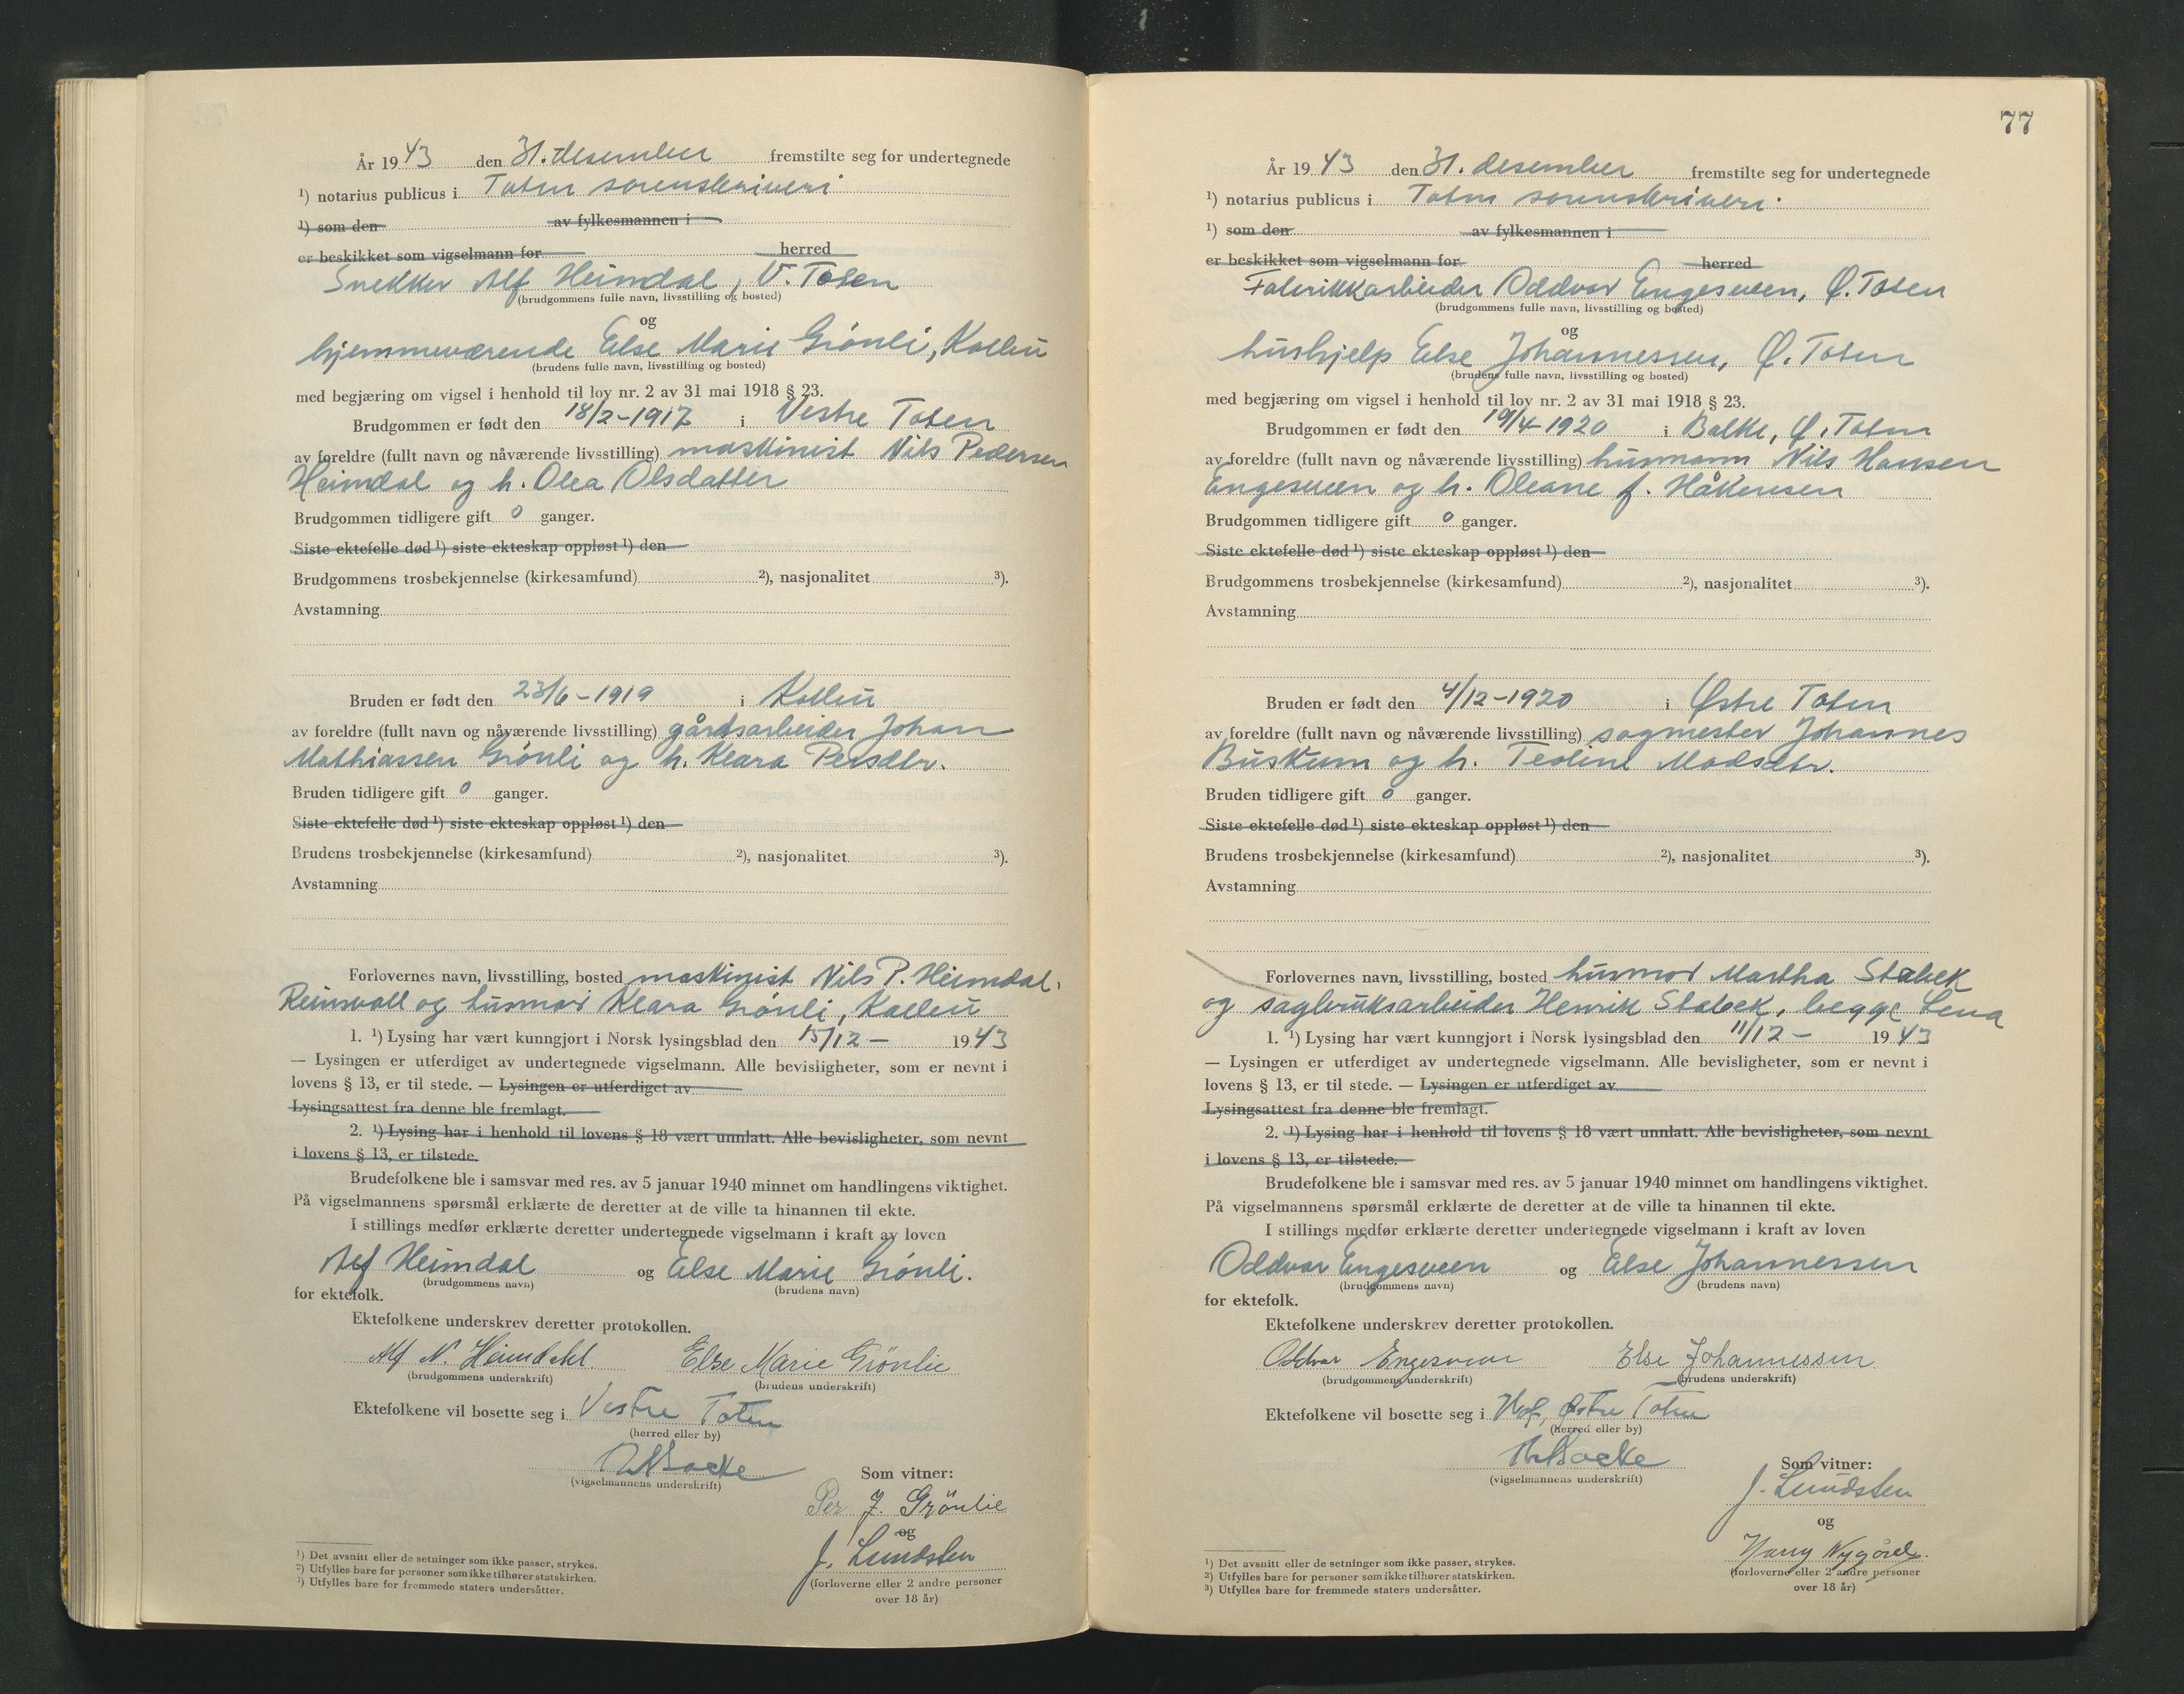 År 1943 den 31. desember fremstilte seg for undertegnede
¹) notarius publicus i Toten sorenskriveri
¹) som den av fylkesmannen i
er beskikket som vigselmann for herred
Snekker Alf Heimdal, V. Toten
(brudgommens fulle navn, livsstilling og bosted)
og
hjemmeværende Else Marie Grönli, Kolbu
(brudens fulle navn, livsstilling og bosted)
med begjæring om vigsel i henhold til lov nr. 2 av 31 mai 1918 § 23.
Brudgommen er født den 18/2-1917 i Vestre Toten
av foreldre (fullt navn og nåværende livsstilling) maskinist Nils Pedersen
Heimdal og h. Olea Olsdatter
Brudgommen tidligere gift 0 ganger.
Siste ektefelle død ¹) siste ekteskap oppløst ¹) den
Brudgommens trosbekjennelse (kirkesamfund) ²), nasjonalitet ³).
Avstamning
Bruden er født den 23/6-1919 i Kolbu
av foreldre (fullt navn og nåværende livsstilling) gårdsarbeider Johan
Mathiassen Grönli og h. Klara Persdtr.
Bruden tidligere gift 0 ganger.
Siste ektefelle død ¹) siste ekteskap oppløst ¹) den
Brudens trosbekjennelse (kirkesamfund) ²), nasjonalitet ³).
Avstamning
Forlovernes navn, livsstilling, bosted maskinist Nils P. Heimdal,
Reinsvoll og husmor Klara Grönli, Kolbu
1. ¹) Lysing har vært kunngjort i Norsk lysingsblad den 15/12 - 1943
— Lysingen er utferdiget av undertegnede vigselmann. Alle bevisligheter, som er nevnt i
lovens § 13, er til stede. — Lysingen er utferdiget av
Lysingsattest fra denne ble fremlagt.
2. ¹) Lysing har i henhold til lovens § 18 vært unnlatt. Alle bevisligheter, som nevnt
i lovens § 13, er tilstede.
Brudefolkene ble i samsvar med res. av 5 januar 1940 minnet om handlingens viktighet.
På vigselmannens spørsmål erklærte de deretter at de ville ta hinannen til ekte.
I stillings medfør erklærte deretter undertegnede vigselmann i kraft av loven
Alf Heimdal og Else Marie Grönli.
(brudgommens navn) (brudens navn)
for ektefolk.
Ektefolkene underskrev deretter protokollen.
Alf N. Heimdahl. Else Marie Grönlie
(brudgommens underskrift) (brudens underskrift)
Ektefolkene vil bosette seg i Vestre Toten
(herred eller by)
(vigselmannens underskrift)
Som vitner:
Per J. Grönlie
og
J. Lundsten
(forloverne eller 2 andre personer
over 18 år)
¹) Det avsnitt eller de setninger som ikke passer, strykes.
²) Utfylles bare for personer som ikke tilhører statskirken.
³) Utfylles bare for fremmede staters undersåtter.
77
År 1943 den 31. desember fremstilte seg for undertegnede
¹) notarius publicus i Toten sorenskriveri
¹) som den av fylkesmannen i
er beskikket som vigselmann for herred
Fabrikkarbeider Oddvar Engesveen, Ø. Toten
(brudgommens fulle navn, livsstilling og bosted)
og
hushjelp Else Johannessen, Ø. Toten
(brudens fulle navn, livsstilling og bosted)
med begjæring om vigsel i henhold til lov nr. 2 av 31 mai 1918 § 23.
Brudgommen er født den 19/4-1920 i Balke, Ø. Toten
av foreldre (fullt navn og nåværende livsstilling) husmann Nils Hansen
Engesveen og h. Oleane f. Håkensen
Brudgommen tidligere gift 0 ganger.
Siste ektefelle død ¹) siste ekteskap oppløst ¹) den
Brudgommens trosbekjennelse (kirkesamfund) ²), nasjonalitet ³).
Avstamning
Bruden er født den 4/12-1920 i Østre Toten
av foreldre (fullt navn og nåværende livsstilling) sagmester Johannes
Buskum og h. Teoline Madsdtr.
Bruden tidligere gift 0 ganger.
Siste ektefelle død ¹) siste ekteskap oppløst ¹) den
Brudens trosbekjennelse (kirkesamfund) ²), nasjonalitet ³).
Avstamning
Forlovernes navn, livsstilling, bosted husmor Martha Stabek
og sagbruksarbeider Henrik Stabek, begge Lena
1. ¹) Lysing har vært kunngjort i Norsk lysingsblad den 11/12 - 1943
— Lysingen er utferdiget av undertegnede vigselmann. Alle bevisligheter, som er nevnt i
lovens § 13, er til stede. — Lysingen er utferdiget av
Lysingsattest fra denne ble fremlagt.
2. ¹) Lysing har i henhold til lovens § 18 vært unnlatt. Alle bevisligheter, som nevnt
i lovens § 13, er tilstede.
Brudefolkene ble i samsvar med res. av 5 januar 1940 minnet om handlingens viktighet.
På vigselmannens spørsmål erklærte de deretter at de ville ta hinannen til ekte.
I stillings medfør erklærte deretter undertegnede vigselmann i kraft av loven
Oddvar Engesveen og Else Johannessen
(brudgommens navn) (brudens navn)
for ektefolk.
Ektefolkene underskrev deretter protokollen.
Oddvar Engesveen Else Johannessen
(brudgommens underskrift) (brudens underskrift)
Ektefolkene vil bosette seg i Hof, Østre Toten
(herred eller by)
(vigselmannens underskrift)
Som vitner:
J. Lundsten
og
Harry Nygård.
(forloverne eller 2 andre personer
over 18 år)
¹) Det avsnitt eller de setninger som ikke passer, strykes.
²) Utfylles bare for personer som ikke tilhører statskirken.
³) Utfylles bare for fremmede staters undersåtter.